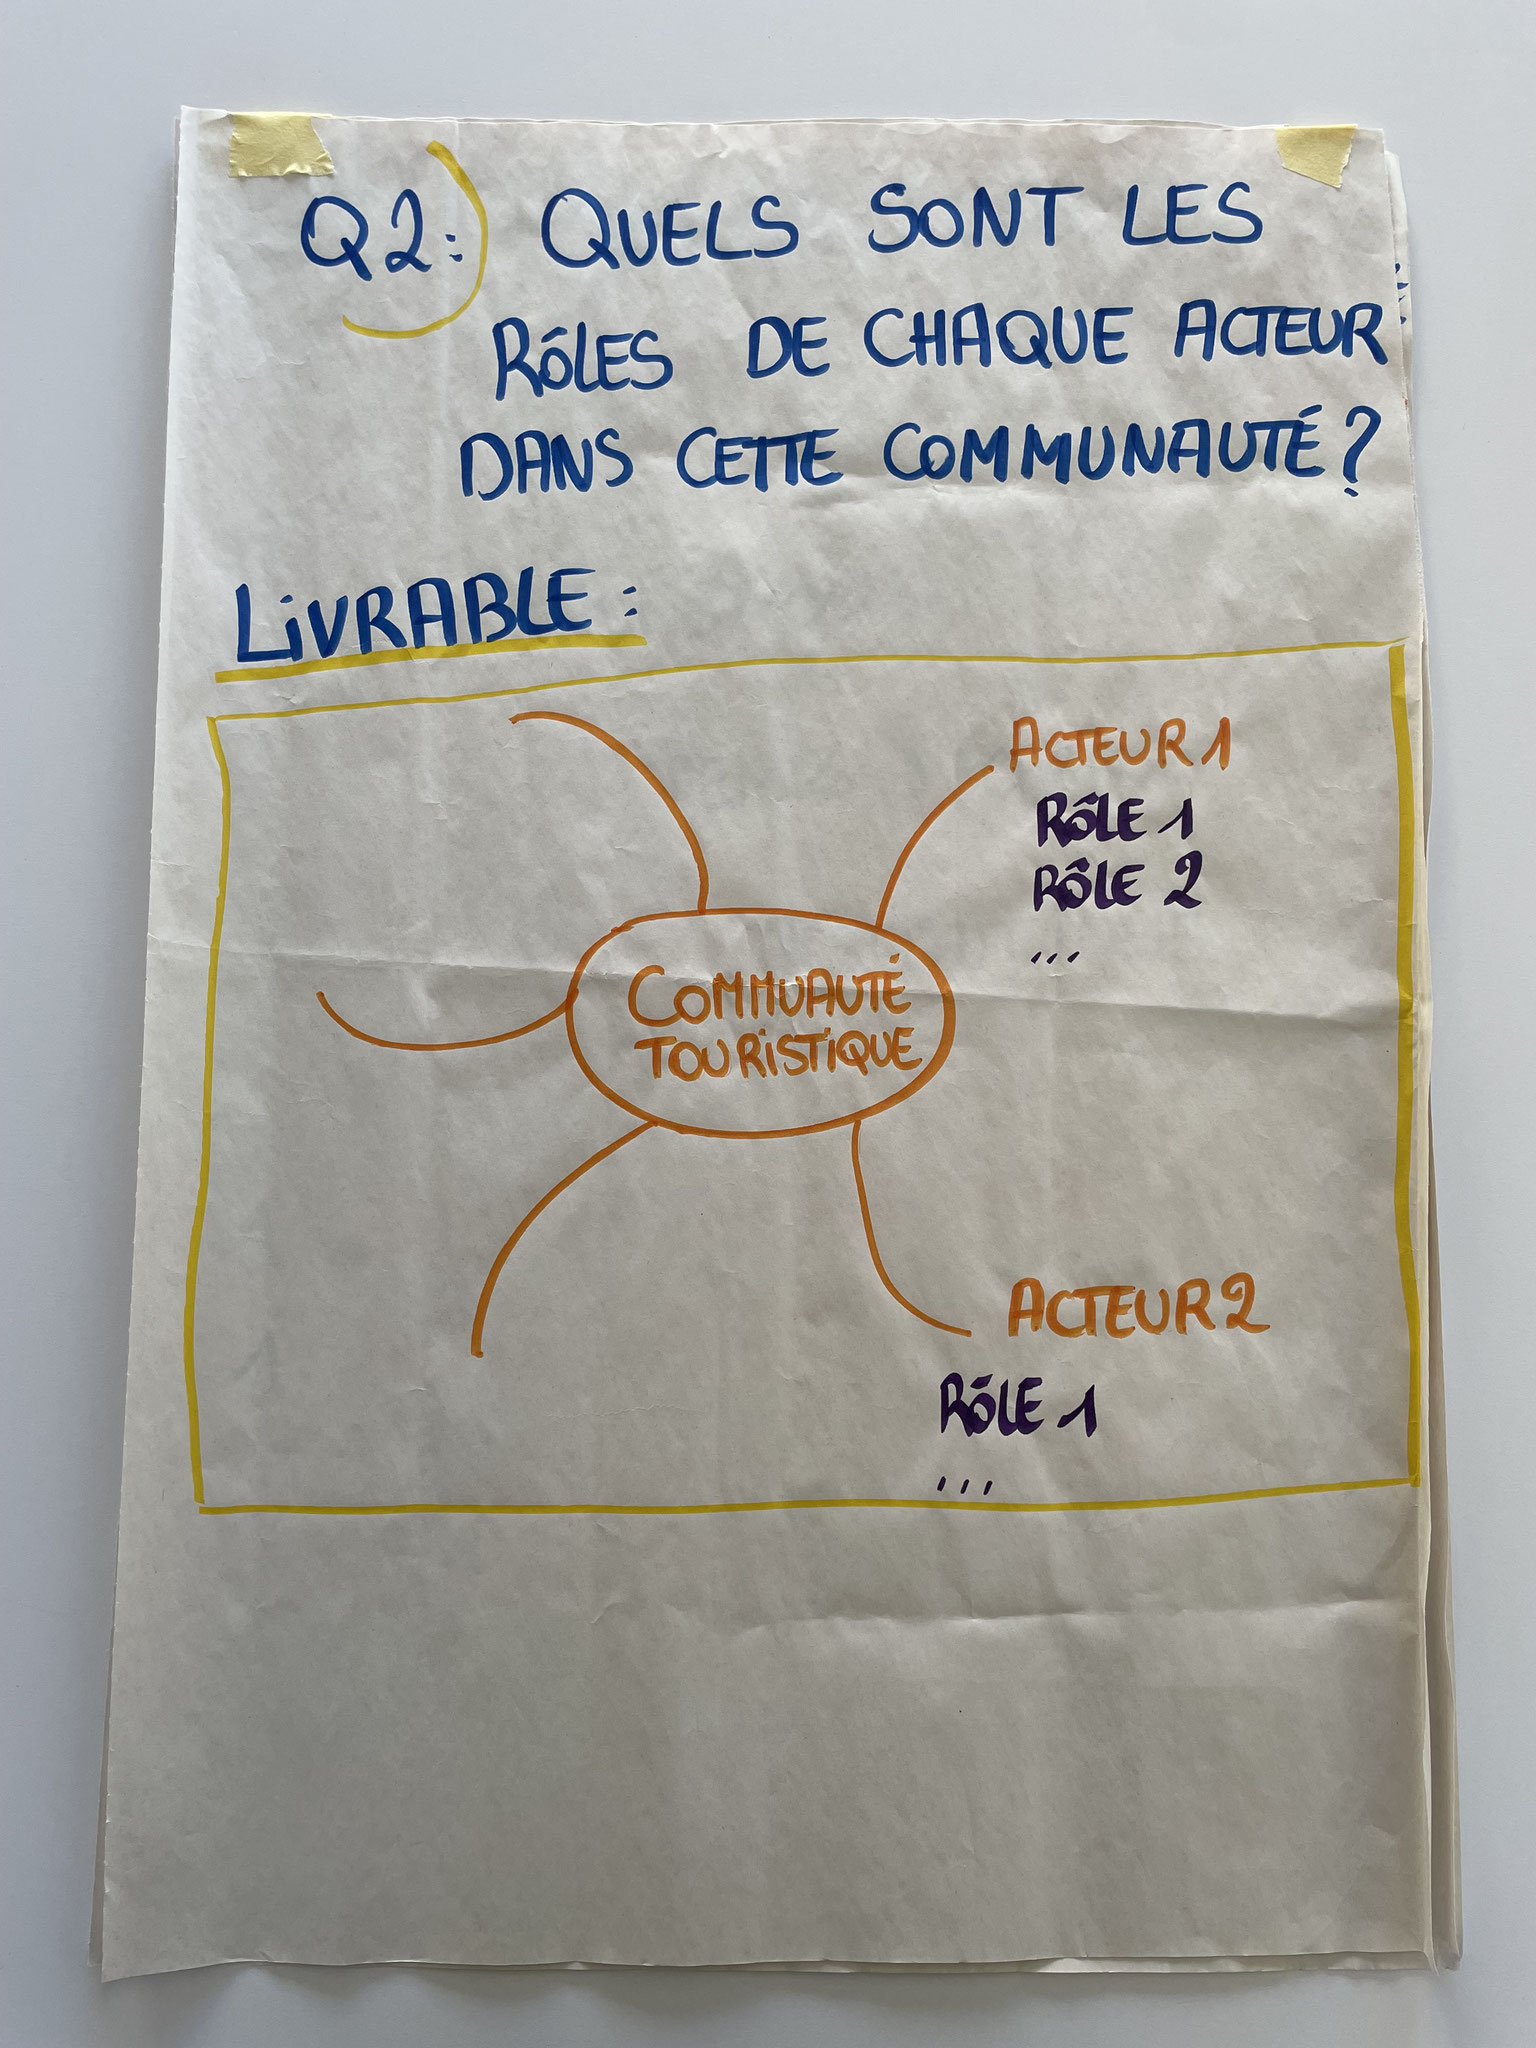 Q2: QUELS SONT LES
RÔLES DE CHAQUE ACTEUR
DANS CETTE COMMUNAUTÉ ?
LIVRABLE :
ACTEUR 1
RÔLE 1
RÔLE 2
...
COMMUAUTÉ
TOURISTIQUE
ACTEUR 2
RÔLE 1
...